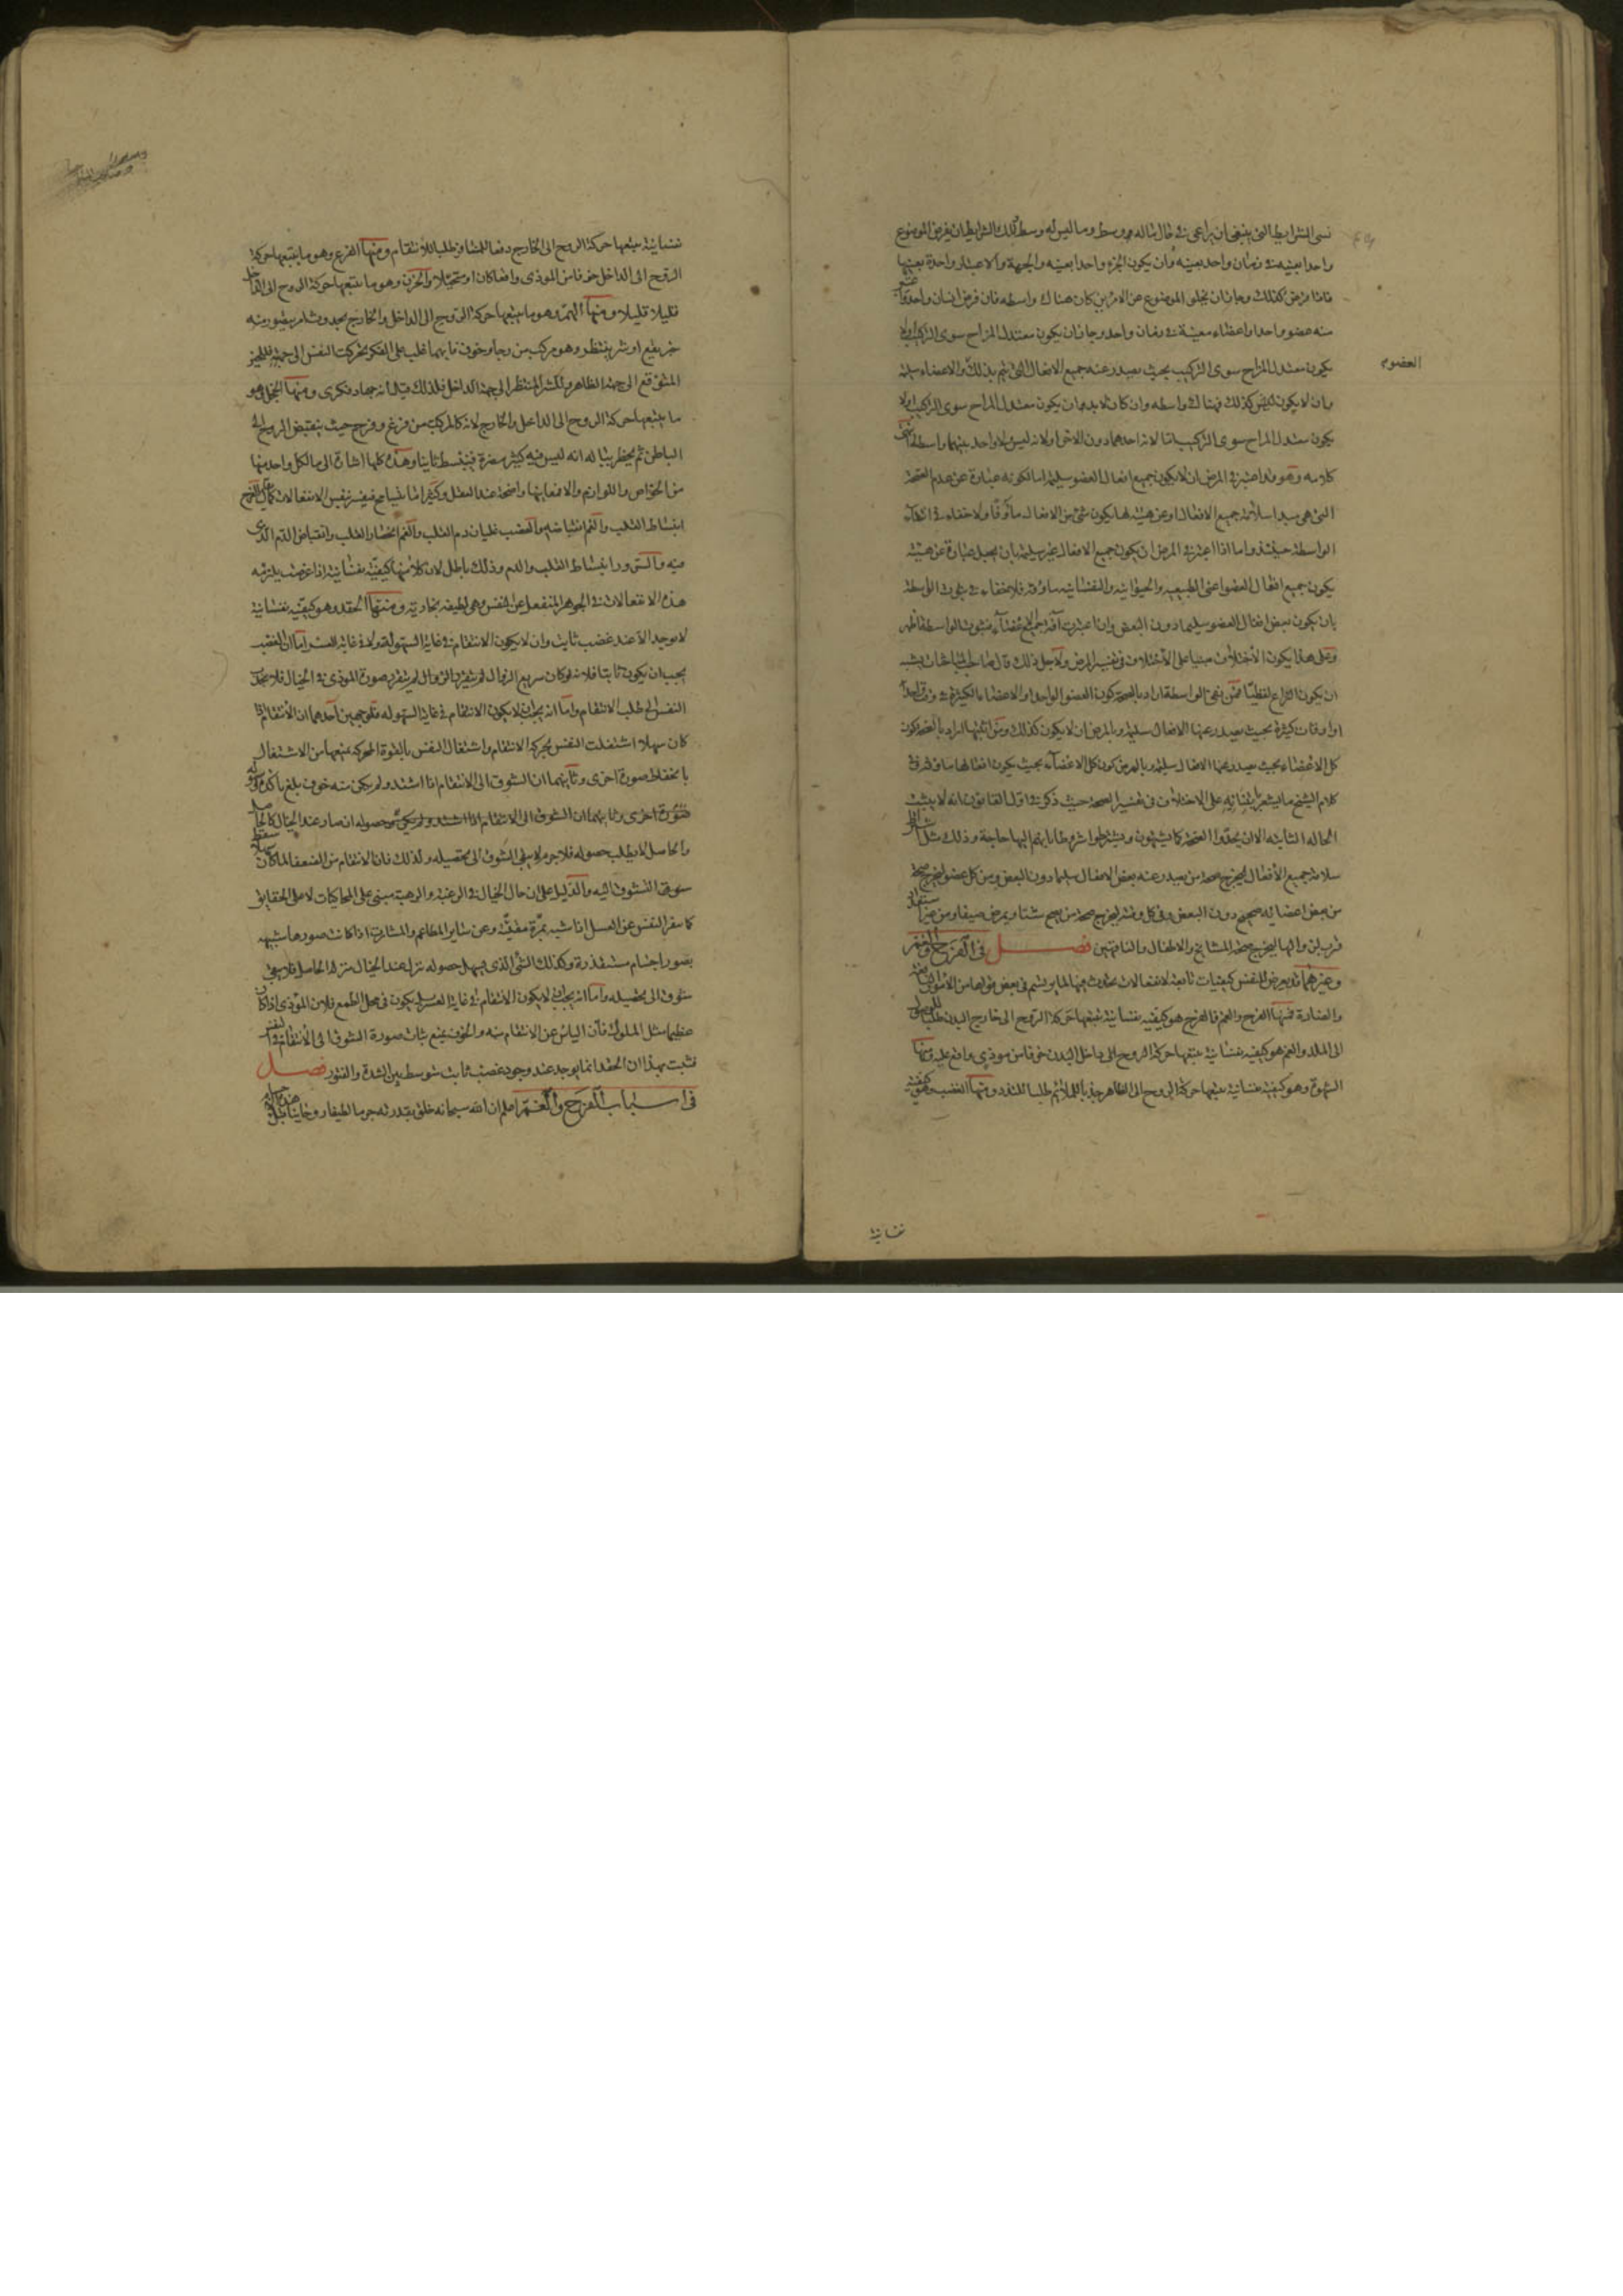 نسى الشرايط التى ينبغى ان يراعى فى حال ماله وسط وما ليس له وسط وتلك الشرايط ان يفرض الموضوع
واحدا بعينه فى زمان واحد بعينه وان يكون الجزء واحدا بعينه والجهة والاعتبار واحدة بعينها
فاذا فرض كذلك وجاز ان يخلو الموضوع عن الامرين كان هناك واسطه فان فرض انسان واحد
منه عضو واحد او اعضاء معينة فى زمان واحد وجاز ان يكون معتدل المزاج سوى التركيب
العضو
يكون معتدل المزاج سوى التركيب بحيث يصدر عنه جميع الافعال التى يتم بذلك والاعضاء سليمة
وان لا يكون كذلك فهناك واسطه وان كان لا بد وان يكون معتدل المزاج سوى التركيب او لا
يكون معتدل المزاج سوى التركيب اما لانه احدهما دون الاخر او لانه ليس ولا واحد بينهما واسطه
كلامه وهو قد اعتبر فى المرض ان لا يكون جميع افعال العضو سليمة اما لكونه عبارة عن عدم الصحة
التى هى مبدا سلامة جميع الافعال او عن هيئة بها يكون شئ من الافعال مأوفا ولا خفاء فى انتفاء
الواسطة حينئذ واما اذا اعتبر فى المرض ان يكون جميع الافعال غير سليمة بان يجعل عبارة عن هيئة
يكون جميع افعال العضو اعنى الطبيعيه والحيوانيه والنفسانيه مأوفة فلا خفاء فى ثبوت الواسطة
بان يكون بعض افعال العضو سليما دون البعض وان اعتبرت آفة جميع الاعضاء فثبوت الواسطة اظهر
وعلى هذا يكون الاختلاف مبنيا على الاختلاف فى تفسير المرض ولاجل ذلك قال صاحب المباحثات يشبه
ان يكون النزاع لفظيا فمن نفى الواسطة اراد بالصحة كون العضو الواحد او الاعضاء الكثيرة فى وقت واحد
او اوقات كثيرة بحيث يصدر عنها الافعال سليمة وبالمرض ان لا يكون كذلك ومن اثبتها اراد بالصحة كون
كل الاعضاء بحيث يصدر عنها الافعال سليمة وبالمرض كون كل الاعضاء بحيث يكون افعالها مأوفة وفى
كلام الشيخ ما يشعر بابتنائه على الاختلاف فى تفسير الصحة حيث ذكر فى اول القانون انه لا يثبت
الحاله الثالثه الا ان يحدوا الصحة كما يشتهون ويشترطوا شروطا ما بهم اليها حاجة وذلك مثل
سلامة جميع الافعال ليخرج صحة من يصدر عنه بعض الافعال سليما دون البعض ومن كل عضو ليخرج صحة
من بعض اعضائه صحيح دون البعض وفى كل وقت ليخرج صحة من يصح شتاء ويمرض صيفا ومن غير
قرب لزوالها ليخرج صحة المشايخ والاطفال والناقهين فصل فى الفرح والغم
وغيرهما قد يعرض للنفس كيفيات تابعة لانفعالات تحدث فيها لما يرتسم فى بعض قواها من الامور النافعة
والضارة فمنها الفرح والغم فالفرح هو كيفيه نفسانية تتبعها حركة الروح الى خارج البدن طلبا للوصول
الى الملذ والغم هو كيفيه نفسانية يتبعها حركة الروح الى داخل البدن خوفا من موذى واقع عليه ومنها
الشهوة وهو كيفية نفسانية يتبعها حركة الروح الى الظاهر جذبا للملائم طلبا للتلذذ ومنها الغضب وهو كيفية
نفسانية
نفسانية يتبعها حركة الروح الى الخارج دفعا للمنافر طلبا للانتقام ومنها الفزع وهو ما يتبعها حركة
الروح الى الداخل خوفا من الموذى واقعا كان او متخيلا والحزن وهو ما يتبعها حركة الروح الى الداخل
قليلا قليلا ومنها الهم وهو ما يتبعها حركة الروح الى الداخل والخارج لحدوث امر يتصور منه
خير يقع او شر ينتظر وهو مركب من رجاء وخوف فايهما غلب على الفكر تحركت النفس الى جهته فللخير
المتوقع الى جهة الظاهر وللشر المنتظر الى جهة الداخل فلذلك قيل انه جهاد فكرى ومنها الخجل وهو
ما يتبعها حركة الروح الى الداخل والخارج لانه كالمركب من فزع وفرح حيث ينقبض الروح الى
الباطن ثم يخطر بباله انه ليس فيه كثير مضرة فينبسط ثانيا وهذه كلها اشارة الى ما لكل واحد منها
من الخواص واللوازم والا فمعانيها واضحة عند العقل وكثيرا ما يتسامح فيفسر بنفس الانفعالات كما يقال الفرح
انبساط القلب والغم انقباضه والغضب غليان دم القلب والغم انحصار القلب وانقباض الدم الذى
فيه والسرور انبساط القلب والدم وذلك باطل لان كلا منها كيفية نفسانية اذا عرضت يلزمه
هذه الانفعالات فى الجوهر المنفعل عن النفس وهى لطيفه بخارية ومنها الحقد وهو كيفية نفسانية
لا يوجد الا عند غضب ثابت وان لا يكون الانتقام فى غاية السهولة ولا فى غاية العسر اما ان الغضب
يجب ان يكون ثابتا فلانه لو كان سريع الزوال لم يتقرر صورة الموذى فى الخيال فلا تتحرك
النفس الى طلب الانتقام واما انه يجب ان لا يكون الانتقام فى غاية السهوله فلوجهين احدهما ان الانتقام اذا
كان سهلا اشتغلت النفس بحركة الانتقام واشتغال النفس بالقوة المحركة يمنعها من الاشتغال
بانحفاظ صورة اخرى وثانيهما ان الشوق الى الانتقام اذا اشتد ولم يكن منه خوف بلغ تاكده
صورة اخرى وثانيهما ان الشوق الى الانتقام اذا اشتد ولم يكن حصوله ان صار عند الخيال كالحاصل
والحاصل لا يطلب حصوله فلا جرم لا يبقى الشوق الى تحصيله ولذلك فان الانتقام من الضعفاء لما كان
لا يبقى الشوق اليه والدليل على ان حال الخيال فى الرغبة والرهبة مبنى على المحاكيات لا على الحقايق
كما ينفر النفس عن العسل اذا شبه بمرة مقيئة وعن ساير المطاعم والمشارب اذا كانت صورها شبيهه
بصور اجسام مستقذرة وكذلك الشئ الذى يسهل حصوله نزل عند الخيال منزلة الحاصل فلا يبقى
شوق الى تحصيله واما انه يجب ان لا يكون الانتقام فى غاية العسر بل يكون فى محل الطمع فلان الموذى اذا كان
عظيما مثل الملوك فان الياس عن الانتقام منه والخوف يمنع ثبات صورة الشوق الى الانتقام فى النفس
فثبت بهذا ان الحقد انما يوجد عند وجود غضب ثابت متوسط بين الشدة والفتور فصل
فى اسباب الفرح والغم اعلم ان الله سبحانه خلق بقدرته جرما لطيفا روحانيا